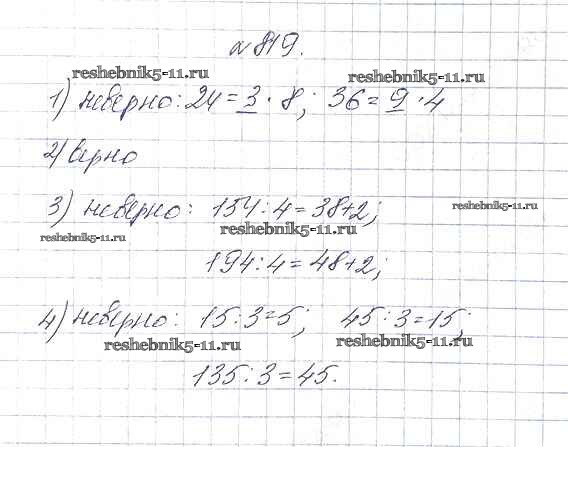 № 819.
reshebnik5-11.ru reshebnik5-11.ru
1) неверно: 24 = 3 · 8; 36 = 9 · 4
2) верно
3) неверно: 154 : 4 = 38+2;
reshebnik5-11.ru
reshebnik5-11.ru reshebnik5-11.ru
194 : 4 = 48+2;
4) неверно: 15 : 3 = 5; 45 : 3 = 15;
reshebnik5-11.ru reshebnik5-11.ru
135 : 3 = 45.